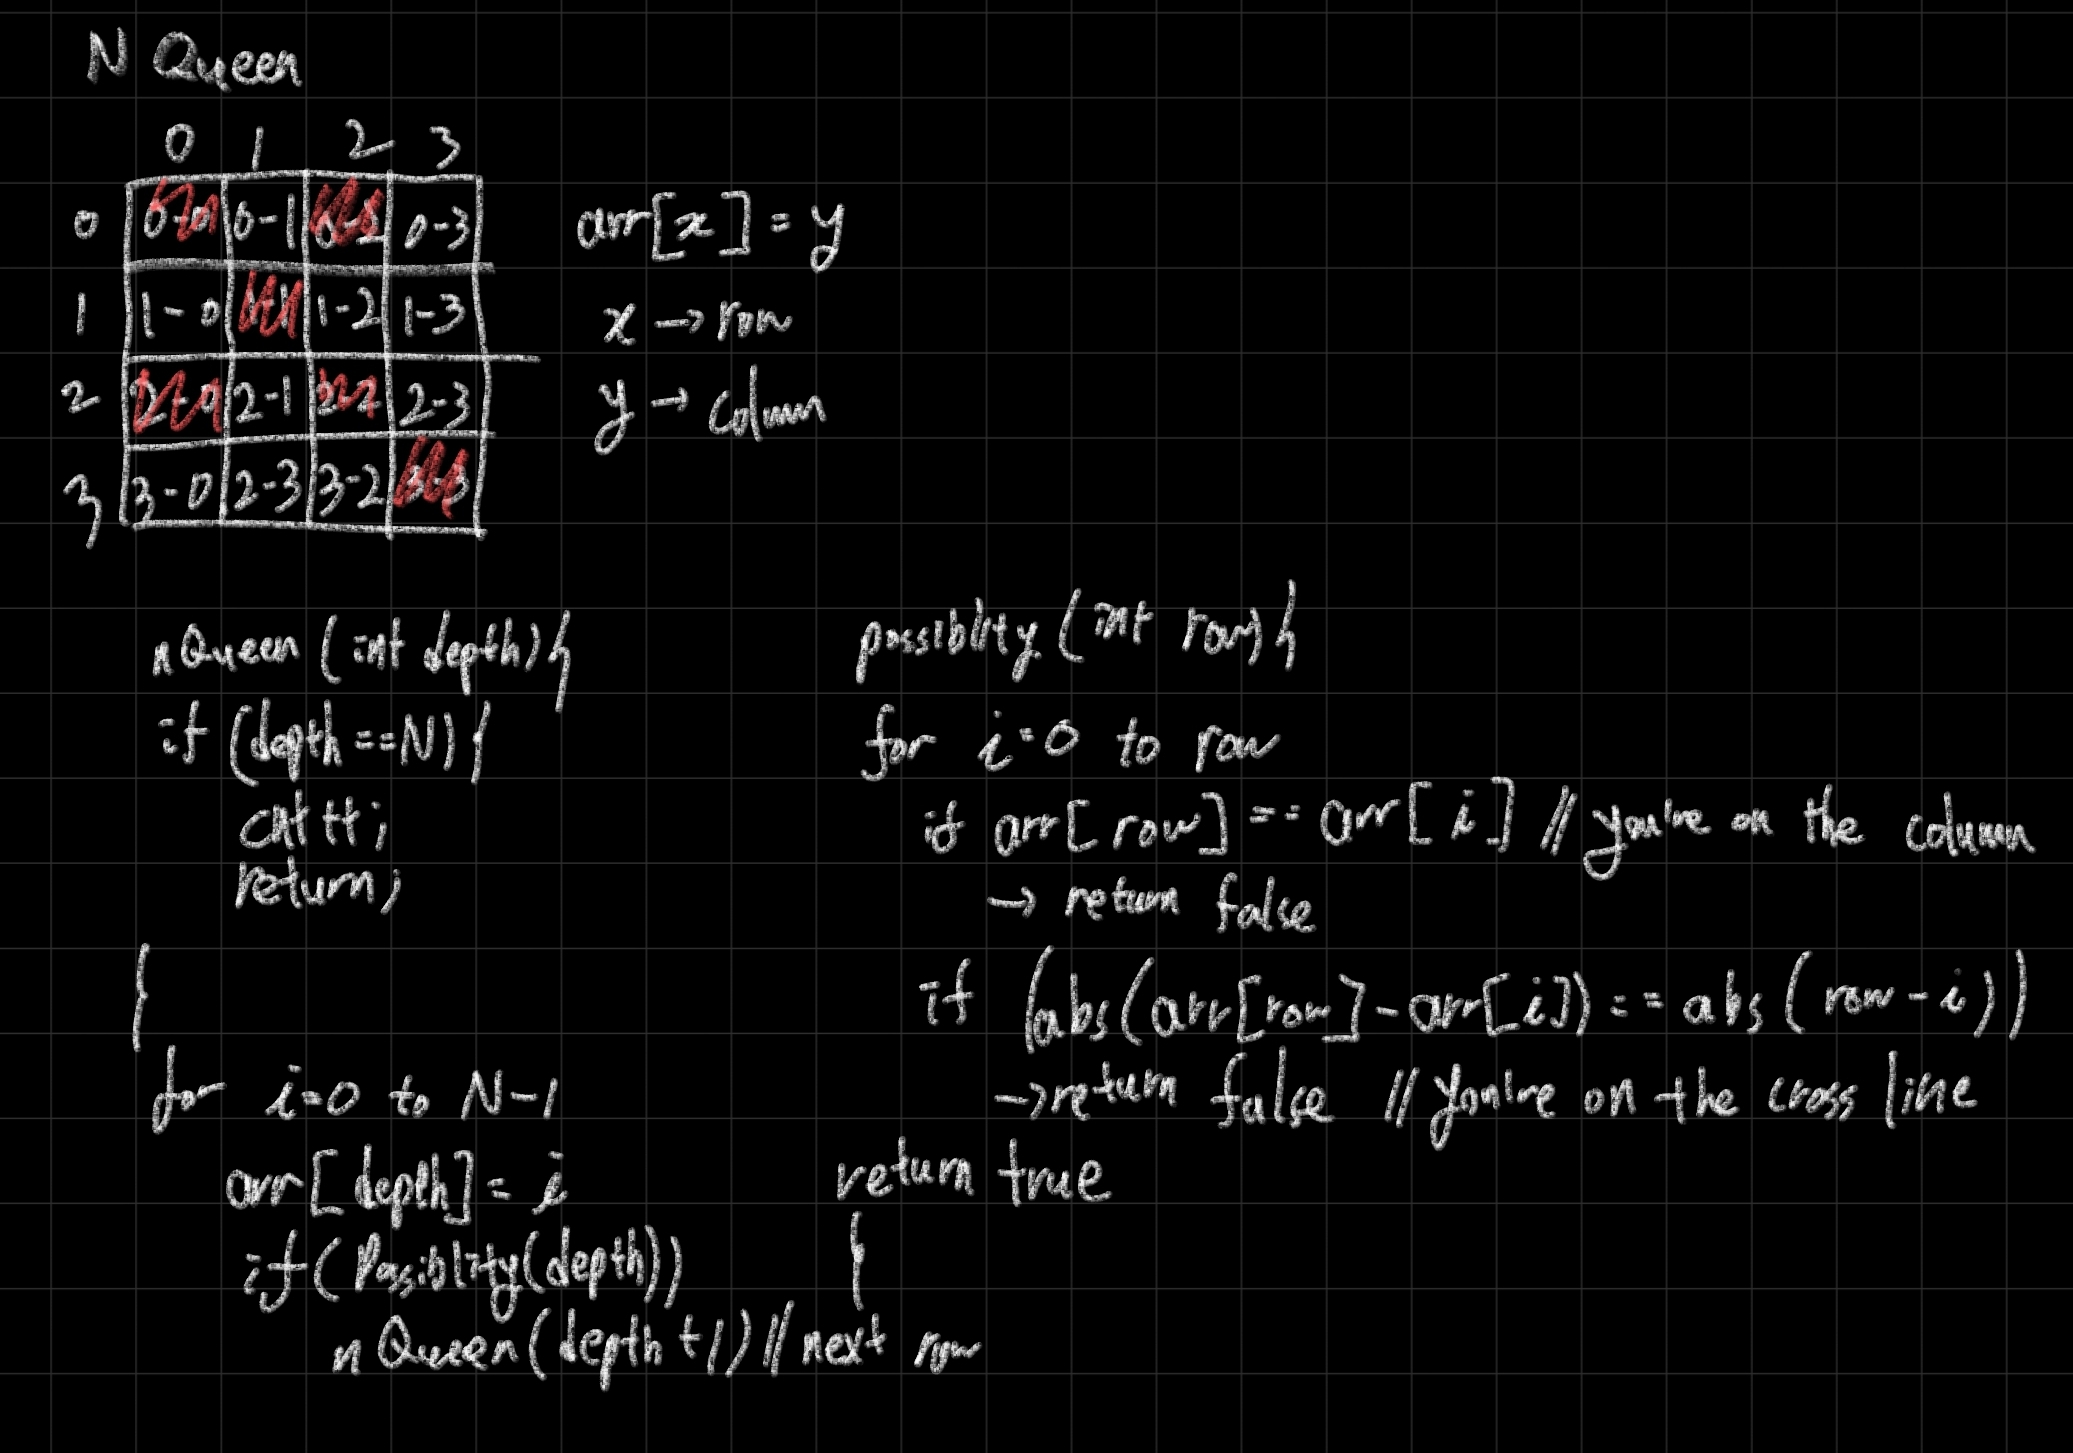 N Queen
0 1 2 3
0 0-0 0-1 0-2 0-3
1 1-0 1-1 1-2 1-3
2 2-0 2-1 2-2 2-3
3 3-0 2-3 3-2 3-3
arr[x] = y
x → row
y → column
nQueen (int depth) {
if (depth==N) {
cnt++;
return;
}
for i=0 to N-1
arr[depth] = i
if (Possiblity(depth))
nQueen(depth+1) // next row
possiblity (int row) {
for i=0 to row
if arr[row] == arr[i] // you're on the column
→ return false
if (abs(arr[row]-arr[i]) == abs(row-i))
→ return false // you're on the cross line
return true
}